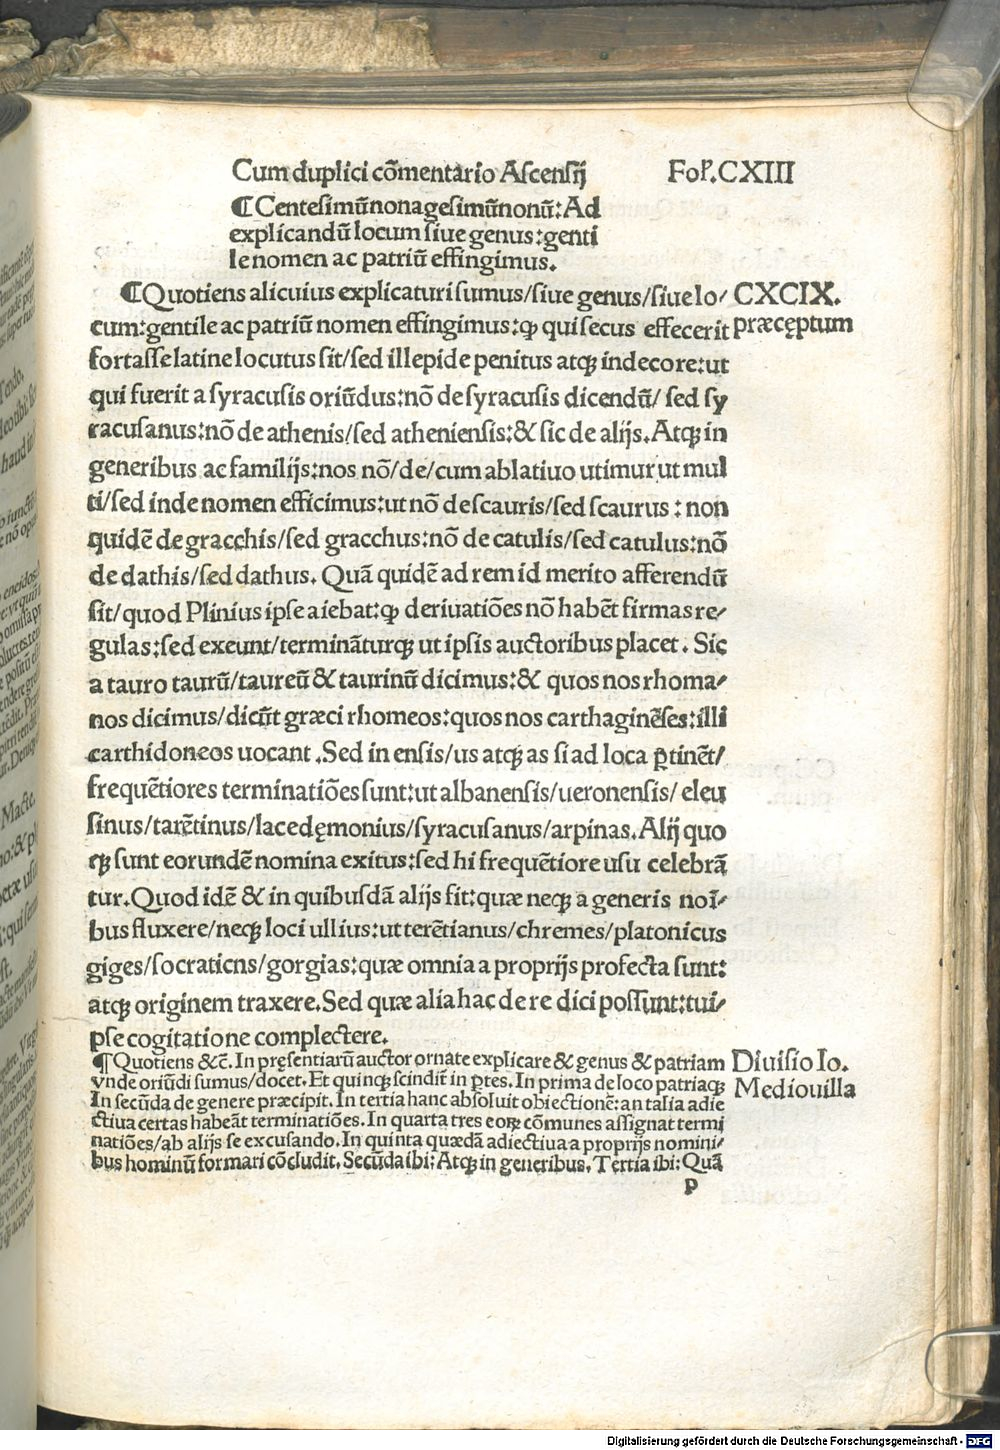 Cum duplici cõmentario Ascensij Fol'.CXIII
¶Centesimũnonagesimũnonũ: Ad
explicandũ locum siue genus: genti
le nomen ac patriũ effingimus.
¶Quotiens alicuius explicaturi sumus/siue genus/siue lo/ CXCIX.
cum: gentile ac patriũ nomen effingimus: ꝙ qui secus effecerit præcęptum
fortasse latine locutus sit/sed illepide penitus atqꝫ indecore: ut
qui fuerit a syracusis oriũdus: nõ de syracusis dicendũ/ sed sy
racusanus: nõ de athenis/sed atheniensis: & sic de alijs. Atqꝫ in
generibus ac familijs: nos nõ/de/cum ablatiuo utimur ut mul
ti/sed inde nomen efficimus: ut nõ de scauris/sed scaurus: non
quidẽ de gracchis/sed gracchus: nõ de catulis/sed catulus: nõ
de dathis/sed dathus. Quã quidẽ ad rem id merito afferendũ
sit/quod Plinius ipse aiebat: ꝙ deriuatiões nõ habẽt firmas re/
gulas: sed exeunt/terminãturqꝫ ut ipsis auctoribus placet. Sic
a tauro taurũ/taureũ & taurinũ dicimus: & quos nos rhoma/
nos dicimus/dicũt græci rhomeos: quos nos carthaginẽses: illi
carthidoneos uocant. Sed in ensis/us atqꝫ as si ad loca ꝑtinẽt/
frequẽtiores terminatiões sunt: ut albanensis/ueronensis/ eleu
sinus/tarẽtinus/lacedęmonius/syracusanus/arpinas. Alij quo
qꝫ sunt eorundẽ nomina exitus: sed hi frequẽtiore usu celebrã
tur. Quod idẽ & in quibusdã alijs fit: quæ neqꝫ a generis noĩ/
bus fluxere/neqꝫ loci ullius: ut terẽtianus/chremes/platonicus
giges/socraticns/gorgias: quæ omnia a proprijs profecta sunt:
atqꝫ originem traxere. Sed quæ alia hac de re dici possunt: tui/
pse cogitatione complectere.
¶Quotiens &c̃. In pręsentiarũ auctor ornate explicare & genus & patriam Diuisio Io.
vnde oriũdi sumus/docet. Et quinqꝫ scindit̃ in ꝑtes. In prima de loco patriaqꝫ Mediouilla
In secũda de genere præcipit. In tertia hanc absoluit obiectionẽ: an talia adie
ctiua certas habeãt terminatiões. In quarta tres eoꝝ cõmunes assignat termi
natiões/ab alijs se excusando. In quinta quædã adiectiua a proprijs nomini/
bus hominũ formari cõcludit. Secũda ibi: Atqꝫ in generibus. Tertia ibi: Quã
p
Digitalisierung gefördert durch die Deutsche Forschungsgemeinschaft - DFG